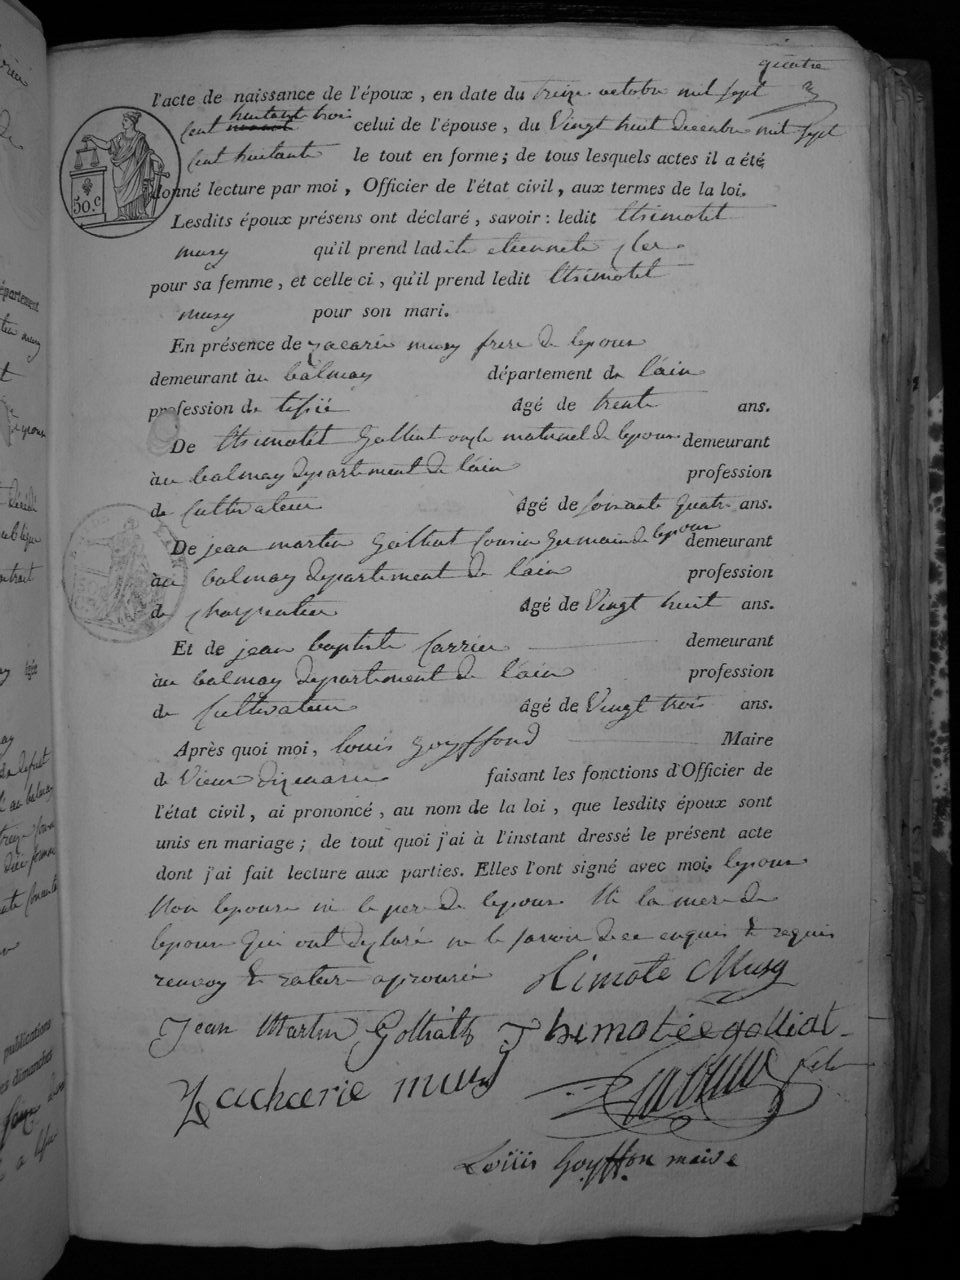 quatre
l'acte de naissance de l'époux, en date du treize octobre mil sept
cent huitante trois celui de l'épouse, du Vingt huit decembre mil sept
cent huitante le tout en forme; de tous lesquels actes il a été
50.c
donné lecture par moi, Officier de l'état civil, aux termes de la loi.
Lesdits époux présens ont déclaré, savoir: ledit thimotet
musy qu'il prend ladite etiennete
pour sa femme, et celle ci, qu'il prend ledit thimotet
musy pour son mari.
En présence de zacarie musy frere de lepoux
demeurant au balmay département de lain
profession de tissie âgé de trente ans.
De thimotet Golliat oncle maternel de lepoux demeurant
au balmay departement de lain profession
de cultivateur âgé de soixante quatre ans.
De jean martin Golliat cousin germain de lepoux demeurant
au balmay departement de lain profession
de charpentier âgé de Vingt huit ans.
Et de jean baptiste carrier demeurant
au balmay departement de lain profession
de cultivateur âgé de Vingt trois ans.
Après quoi moi, louis goyffond Maire
de Vieux dizenave faisant les fonctions d'Officier de
l'état civil, ai prononcé, au nom de la loi, que lesdits époux sont
unis en mariage; de tout quoi j'ai à l'instant dressé le présent acte
dont j'ai fait lecture aux parties. Elles l'ont signé avec moi. lepoux
Non lepouse ni le pere de lepoux Ni la mere de
lepouse qui ont declaré ne le savoir de ce enquis & requis
renvoy & rature aprouvée thimote Musy
Jean Martin Golliat Thimotée golliat
Zacharie musy
Louis Goyffon maire